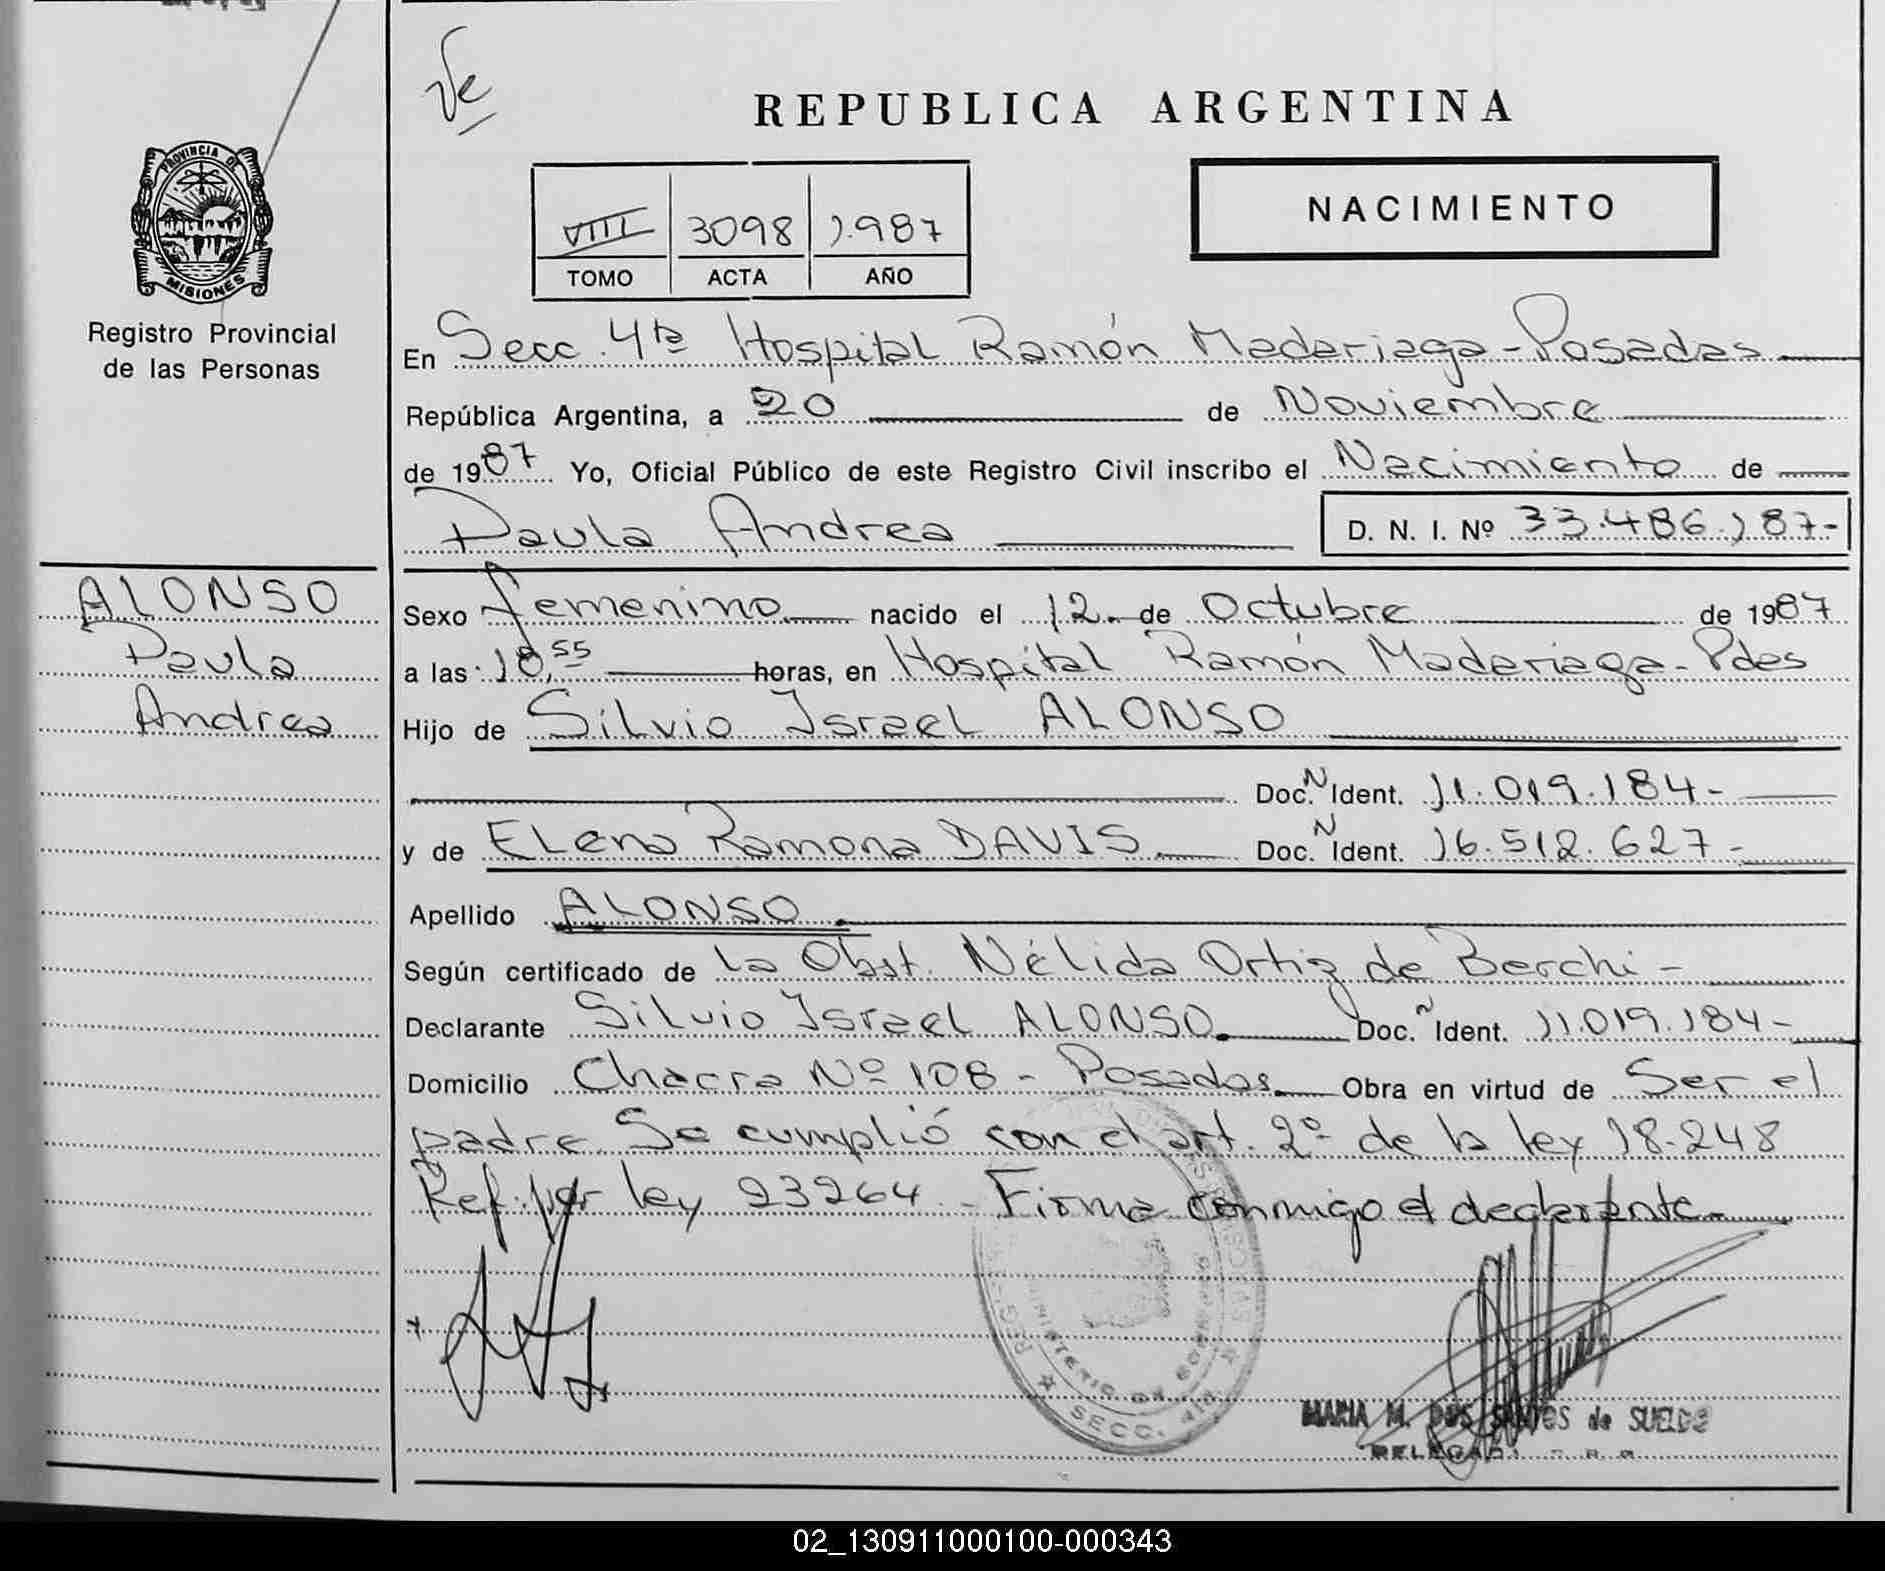 REPUBLICA ARGENTINA
PROVINCIA DE
MISIONES
Registro Provincial
de las Personas
NACIMIENTO
VIII 3098 1.987
TOMO ACTA AÑO
En Secc. 4ta Hospital Ramón Madariaga - Posadas
República Argentina, a 20 de Noviembre
de 1987 Yo, Oficial Público de este Registro Civil inscribo el Nacimiento de
Paula Andrea D. N. I. Nº 33.486.187-
ALONSO
Paula
Andrea
Sexo femenino nacido el 12 de Octubre de 1987
a las 18,55 horas, en Hospital Ramón Madariaga - Pdas
Hijo de Silvio Israel ALONSO
Doc. N Ident. 11.019.184-
y de Elena Ramona DAVIS Doc. N Ident. 16.512.627-
Apellido ALONSO
Según certificado de la Obst. Nélida Ortiz de Berchi -
Declarante Silvio Israel ALONSO. Doc. N Ident. 11.019.184-
Domicilio Chacra Nº 108 - Posadas. Obra en virtud de Ser el
padre. Se cumplió con el art. 2º de la ley 18.248
Ref. por ley 23264 - Firma conmigo el declarante.-
MINISTERIO DE GOBIERNO
SECC. 4ta
MARIA M. DOS SANTOS de SUELDO
02_130911000100-000343